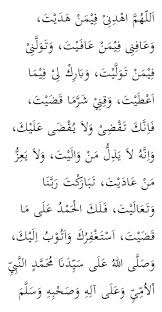 اَللّٰهُمَّ اهْدِنِيْ فِيْمَنْ هَدَيْتَ،
وَعَافِنِي فِيْمَنْ عَافَيْتَ، وَتَوَلَّنِيْ
فِيْمَنْ تَوَلَّيْتَ، وَبَارِكْ لِيْ فِيْمَا
أَعْطَيْتَ، وَقِنِيْ شَرَّمَا قَضَيْتَ،
فَإِنَّكَ تَقْضِيْ وَلاَ يُقْضَى عَلَيْكَ،
وَإِنَّهُ لاَ يَذِلُّ مَنْ وَالَيْتَ، وَلاَ يَعِزُّ
مَنْ عَادَيْتَ، تَبَارَكْتَ رَبَّنَا
وَتَعَالَيْتَ، فَلَكَ الْحَمْدُ عَلَى مَا
قَضَيْتَ، اَسْتَغْفِرُكَ وَاَتُوْبُ اِلَيْكَ،
وَصَلَّى اللهُ عَلَى سَيِّدِنَا مُحَمَّدٍ النَّبِيِّ
اْلأُمِّيِّ وَعَلَى آلِهِ وَصَحْبِهِ وَسَلَّمَ